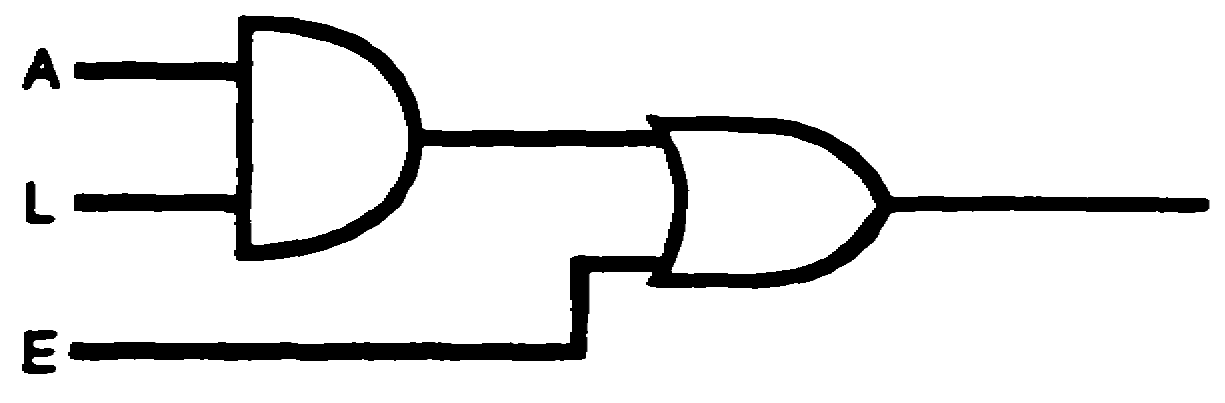 A
L
E